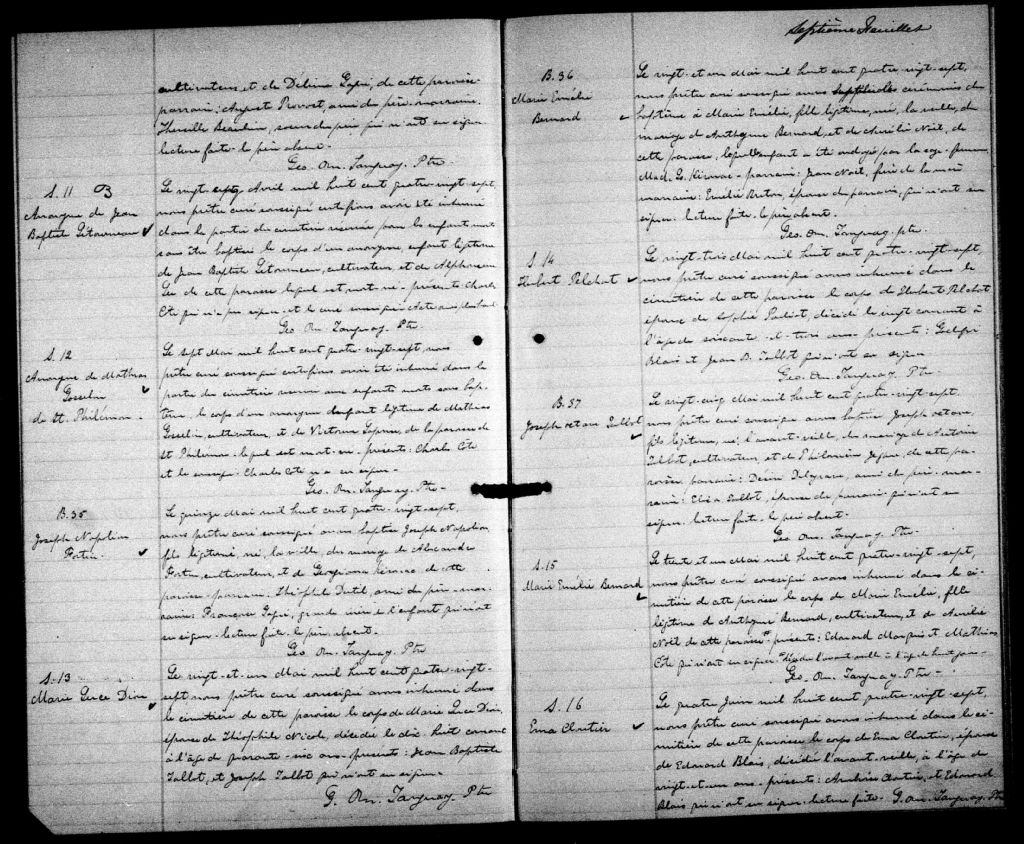 cultivateur, et de Délina Lapré, de cette paroisse
parrain: Auguste Provost, ami du père. marraine:
Beaulieu, soeur du père qui n'a signer
lecture faite. le père absent.
Geo. On. Tanguay. Ptre
S. 11 B
Anonyme de Jean
Baptiste Létourneau
Le vingt sept Avril mil huit cent quatre-vingt-sept,
nous prêtre curé soussigné certifions avoir été inhumé
dans la partie du cimetière réservée pour les enfants morts
sans être baptisés le corps d'un anonyme enfant légitime
de Jean Baptiste Létourneau, cultivateur, et de
de cette paroisse lequel est mort-né. présents Charles
Côté qui n'a pu signer et le curé soussigné
Geo On. Tanguay. Ptre.
S. 12
Anonyme de Mathias
Gosselin
de St. Philémon.
Le sept Mai mil huit cent quatre-vingt-sept, nous
prêtre curé soussigné certifions avoir été inhumé dans la
partie du cimetière réservé aux enfants morts sans bap-
tême, le corps d'un anonyme enfant légitime de Mathias
Gosselin, cultivateur, et de Victoria de la paroisse de
St Philémon. lequel est mort-né. présents: Charles Côté
et le soussigné. Charles Côté n'a su signer.
Geo. On. Tanguay. Ptre
B. 35
Joseph Napoléon
Fortin
Le quinze Mai mil huit cent quatre-vingt-sept,
nous prêtre curé soussigné avons baptisé Joseph Napoléon,
fils légitime né, la veille, du mariage de Alexandre
Fortin, cultivateur, et de Georgiana de cette
paroisse. parrain: Théophile Dutil, ami du père. mar-
raine: Françoise grande mère de l'enfant qui n'ont
su signer. lecture faite. le père absent.
Geo On. Tanguay Ptre
S. 13
Marie Luce Dion
Le vingt-et-un Mai mil huit cent quatre-vingt-
sept nous prêtre curé soussigné avons inhumé dans
le cimetière de cette paroisse le corps de Marie Luce Dion,
épouse de Théophile Nicole, décédée le dix-huit courant
à l'âge de quarante-six ans. présents: Jean Baptiste
Tallot, et Joseph Tallot qui n'ont su signer.
G. On. Tanguay. Ptre
Septième Feuillet
B. 36
Marie Emélie
Bernard
Le vingt-et-un Mai mil huit cent quatre-vingt-sept,
nous prêtre curé soussigné avons suppléé les cérémonies du
baptême à Marie Emélie, fille légitime, née, la veille, du
mariage de Anthyme Bernard, et de Aurélie Noël, de
cette paroisse, lequel enfant a été ondoyé par la sage-femme
Mad. G. parrain: Jean Noël, frère de la mère
marraine: Emélie épouse du parrain, qui n'ont su
signer. lecture faite. le père absent.
Geo. On. Tanguay. ptre.
S. 14
Hubert Pelchat
Le vingt-trois Mai mil huit cent quatre-vingt-sept,
nous prêtre curé soussigné avons inhumé dans le
cimetière de cette paroisse le corps de Hubert Pelchat
époux de Sophie Pouliot, décédé le vingt courant à
l'âge de soixante-et-trois ans. présents:
Blais et Jean B. Tallot qui n'ont su signer
Geo. On. Tanguay Ptre.
B. 37
Joseph Octave Tallot
Le vingt-cinq Mai mil huit cent quatre-vingt-sept,
nous prêtre curé soussigné avons baptisé Joseph Octave,
fils légitime, né, l'avant-veille, du mariage de
Tallot, cultivateur, et de Philomène de cette pa-
roisse, parrain: Désiré ami du père. mar-
raine: Eliza Tallot, épouse du parrain qui n'ont su
signer. lecture faite. le père absent.
Geo. On. Tanguay Ptre.
S. 15
Marie Emélie Bernard
Le trente et un Mai mil huit cent quatre-vingt-sept,
nous prêtre curé soussigné avons inhumé dans le ci-
metière de cette paroisse le corps de Marie Emélie, fille
légitime de Anthyme Bernard, cultivateur, et de Aurélie
Noël de cette paroisse présents: Edouard et Mathias
Côté qui n'ont su signer. décédée l'avant-veille à l'âge de huit jours
Geo. On. Tanguay Ptre.
S. 16
Ema Cloutier
Le quatre Juin mil huit cent quatre-vingt-sept,
nous prêtre curé soussigné avons inhumé dans le ci-
metière de cette paroisse le corps de Ema Cloutier, épouse
de Edouard Blais, décédée l'avant-veille, à l'âge de
vingt-et-un ans. présents: Ambroise Cloutier, et Edouard
Blais qui n'ont su signer. lecture faite. G. On. Tanguay. Ptre